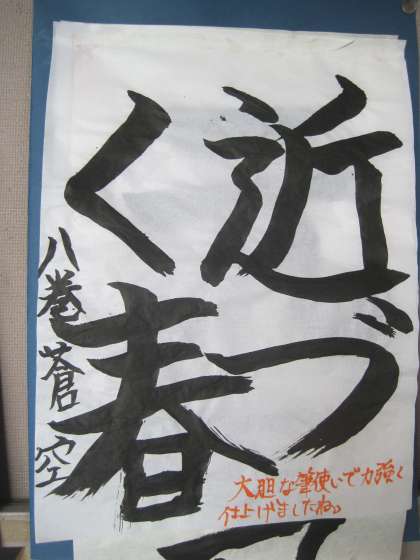 近づ
く春
八巻蒼空
大胆な筆使いで力強く
仕上げましたね。